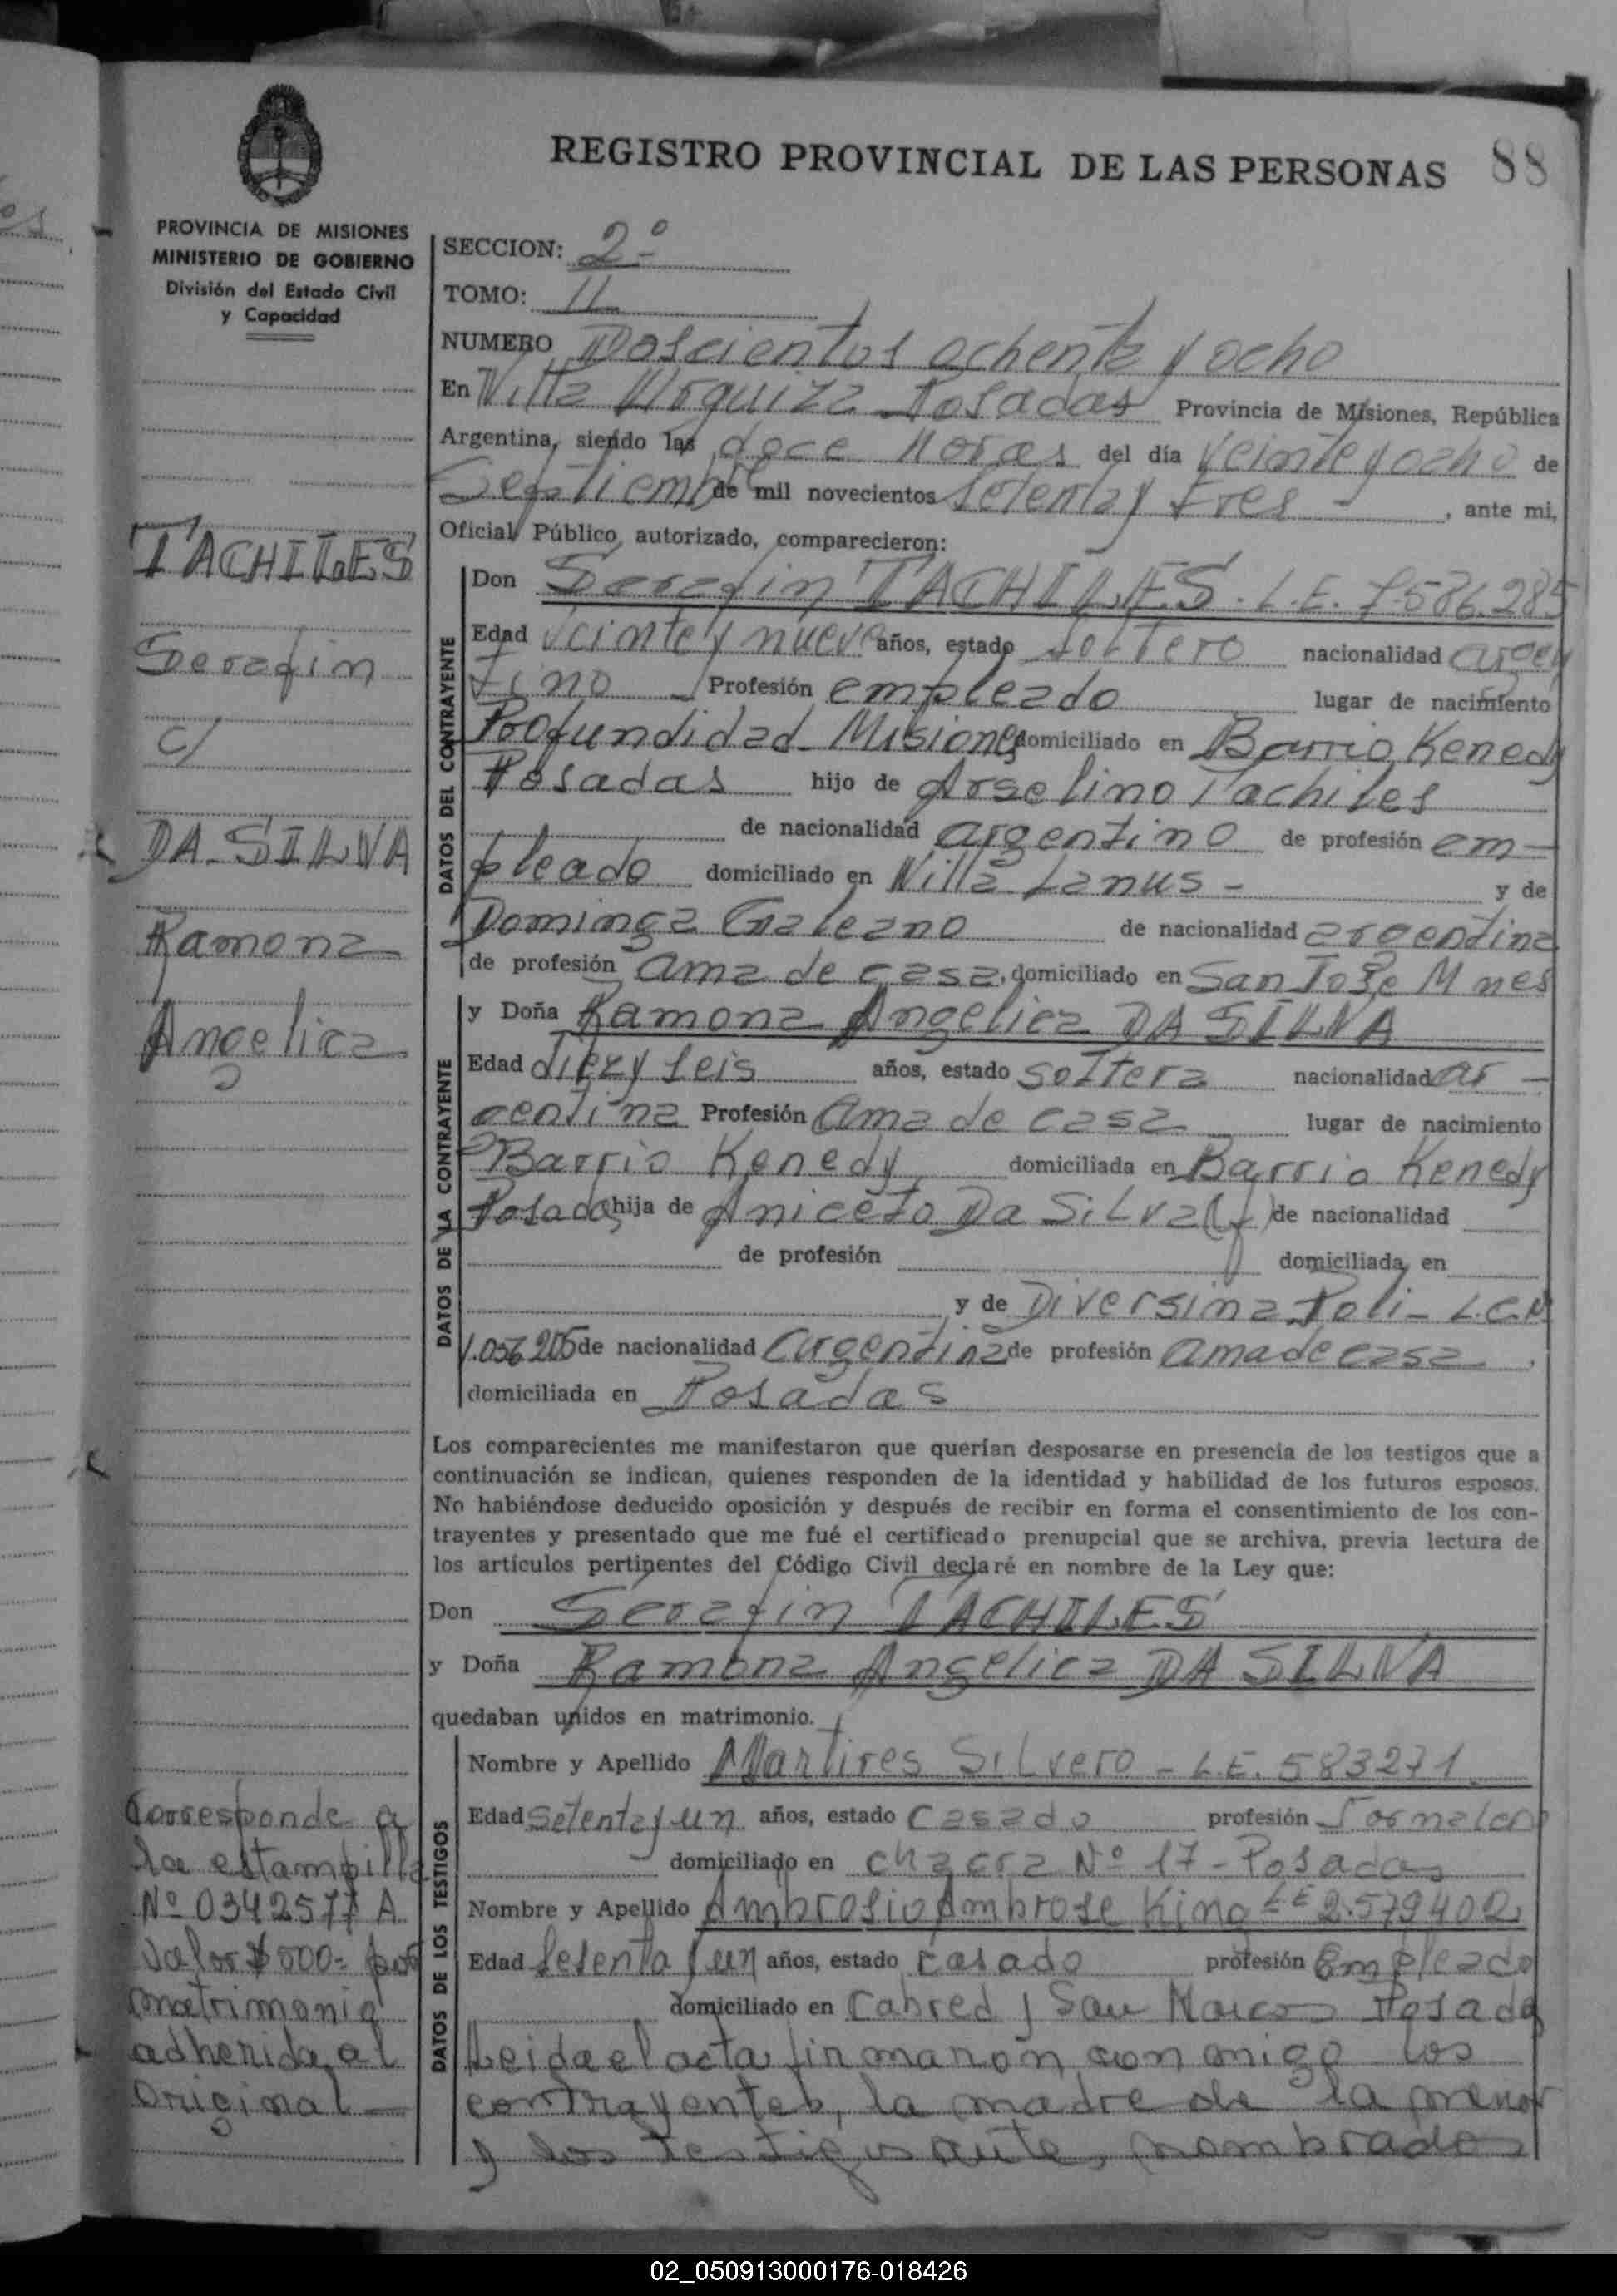 REGISTRO PROVINCIAL DE LAS PERSONAS 88
PROVINCIA DE MISIONES
MINISTERIO DE GOBIERNO
División del Estado Civil
y Capacidad
TACHILES
Serafin
c/
DA SILVA
Ramona
Angelica
Corresponde a
la estampilla
Nº 0342577 A
valor $ 800= por
matrimonio
adherida al
original
SECCION: 2º
TOMO: II
NUMERO Doscientos ochenta y ocho
En Villa Urquiza Posadas Provincia de Misiones, República
Argentina, siendo las doce horas del día veinte y ocho de
Septiembre de mil novecientos setenta y tres , ante mi,
Oficial Público autorizado, comparecieron:
DATOS DEL CONTRAYENTE
Don Serafin TACHILES. L.E. 7.586.285
Edad veinte y nueve años, estado soltero nacionalidad argen
tino Profesión empleado lugar de nacimiento
Profundidad Misiones domiciliado en Barrio Kenedy
Posadas hijo de Arselino Tachiles
de nacionalidad argentino de profesión em-
pleado domiciliado en Villa Lanus - y de
Dominga Galeano de nacionalidad argentina
de profesión ama de casa, domiciliado en San José Mnes
DATOS DE LA CONTRAYENTE
y Doña Ramona Angelica DA SILVA
Edad diez y seis años, estado soltera nacionalidad ar-
gentina Profesión ama de casa lugar de nacimiento
Barrio Kenedy domiciliada en Barrio Kenedy
Posadas hija de Aniceto Da Silva (f) de nacionalidad
de profesión domiciliada en
y de Diversina Poli - L.C.N
1.056.205 de nacionalidad argentina de profesión ama de casa ,
domiciliada en Posadas
Los comparecientes me manifestaron que querían desposarse en presencia de los testigos que a
continuación se indican, quienes responden de la identidad y habilidad de los futuros esposos.
No habiéndose deducido oposición y después de recibir en forma el consentimiento de los con-
trayentes y presentado que me fué el certificado prenupcial que se archiva, previa lectura de
los artículos pertinentes del Código Civil declaré en nombre de la Ley que:
Don Serafin TACHILES
y Doña Ramona Angelica DA SILVA
quedaban unidos en matrimonio.
DATOS DE LOS TESTIGOS
Nombre y Apellido Martires Silvero - L.E. 583271
Edad setenta y un años, estado casado profesión Jornalero
domiciliado en chacra Nº 17 - Posadas
Nombre y Apellido Ambrosio Ambrose King LE 2.579402
Edad sesenta y un años, estado casado profesión Empleado
domiciliado en Cabred y San Marcos Posadas
Leida el acta firmaron conmigo los
contrayentes, la madre de la menor
y los testigos ante, nombrados
02_050913000176-018426